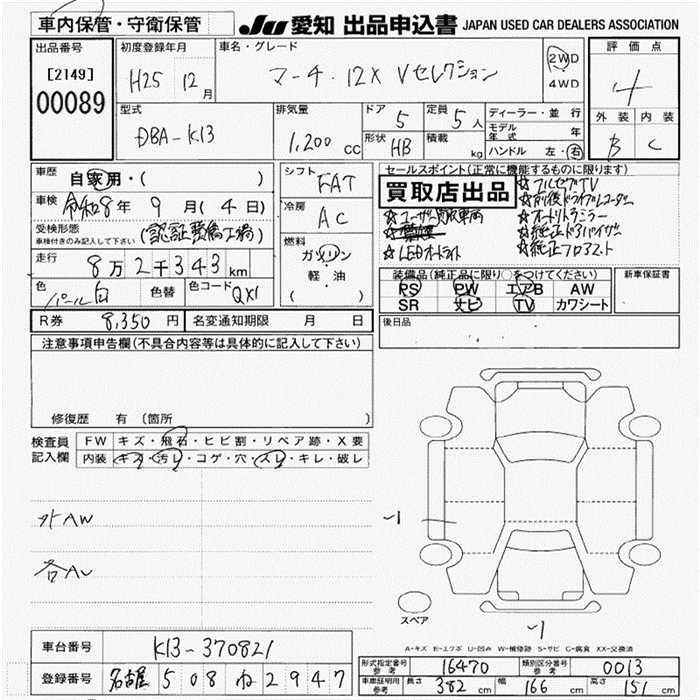 車内保管・守衛保管
JU 愛知 出品申込書 JAPAN USED CAR DEALERS ASSOCIATION
出品番号 [2149] 00089
初度登録年月 H25 12月
車名・グレード マーチ・12X Vセレクション
2WD
4WD
評価点 4
外装 内装
B C
型式 DBA-K13
排気量 1,200 cc
ドア 5
定員 5人
形状 HB
積載 kg
ディーラー・並行
モデル年式 年
ハンドル 左・右
車歴 自家用・( )
車検 令和8年 9月 (4日)
受検形態 (認証整備工場)
車検付きのみ記入して下さい
走行 8万2千343km
色 パール白 色替 色コード QX1
シフト FAT
冷房 AC
燃料 ガソリン
軽・油
( )
セールスポイント(正常に機能するものに限ります)
買取店出品
☆フルセグTV
☆前後ドライブレコーダー
☆ユーザー買取車両
☆オートリトラミラー
☆純正ドアバイザー
☆LEDオートライト
☆純正フロアマット
装備品(純正品に限り○をつけてください)
PS PW エアB AW
SR ナビ TV カワシート
新車保証書
後日品
R券 8,350円 名変通知期限 月 日
注意事項申告欄(不具合内容等は具体的に記入して下さい)
修復歴 有 (箇所
検査員記入欄
FW キズ・飛石・ヒビ割・リペア跡・X要
内装 キズ・汚レ・コゲ・穴・スレ・キレ・破レ
外AW
各AU
-1
スペア
-1
A-キズ E-エクボ U-凹み W-補修跡 S-サビ C-腐食 XX-交換済
車台番号 K13-370821
登録番号 名古屋 508 ね 2947
形式指定番号 参考 16470 類別区分番号 参考 0013
車庫証明用 参考 長さ 382 cm 幅 166 cm 高さ 151 cm